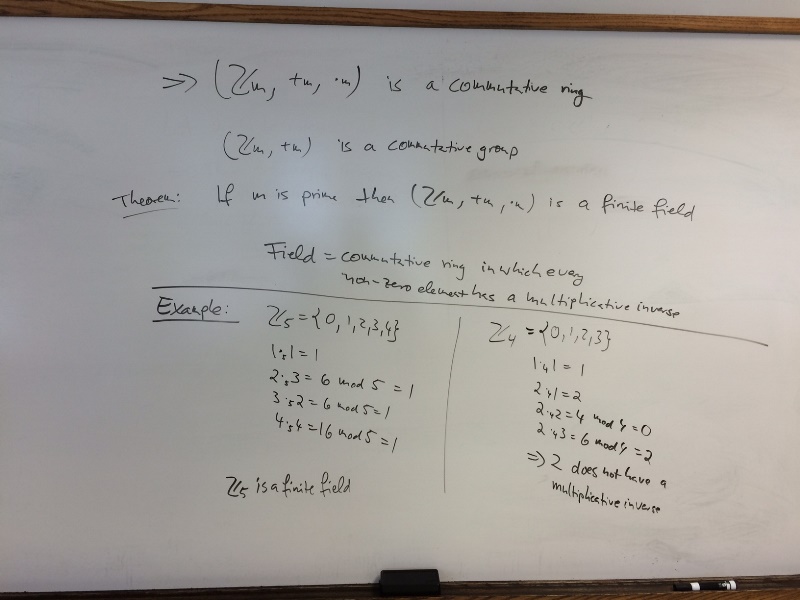 ⇒ (ℤm, +m, ·m) is a commutative ring
(ℤm, +m) is a commutative group
Theorem: If m is prime then (ℤm, +m, ·m) is a finite field
Field = commutative ring in which every
non-zero element has a multiplicative inverse
Example:
ℤ5 = {0, 1, 2, 3, 4}
1 ·5 1 = 1
2 ·5 3 = 6 mod 5 = 1
3 ·5 2 = 6 mod 5 = 1
4 ·5 4 = 16 mod 5 = 1
ℤ5 is a finite field
ℤ4 = {0, 1, 2, 3}
1 ·4 1 = 1
2 ·4 1 = 2
2 ·4 2 = 4 mod 4 = 0
2 ·4 3 = 6 mod 4 = 2
⇒ 2 does not have a
multiplicative inverse